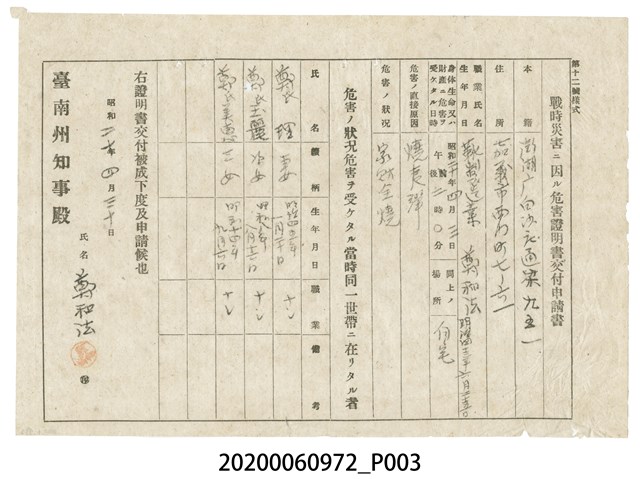 第十二號樣式
戰時災害ニ因ル危害證明書交付申請書
本籍 澎湖廳白沙庄通梁九五一
住所 嘉義市西門町七ノ六一
職業氏名生年月日 靴製造業 鄭和法
身体生命又ハ財產ニ危害ヲ受ケタル日時 昭和二十年四月三日 午後二時〇分 同上ノ場所 自宅
危害ノ直接原因 燒夷彈
危害ノ狀況 家財全燒
危害ノ狀況危害ヲ受ケタル當時同一世帶ニ在リタル者
氏名 續柄 生年月日 職業 備考
鄭 妻 明治四三年一月二十日 ナシ
鄭氏玉麗 次女 昭和 ナシ
鄭氏美惠 三女 ナシ
右證明書交付被成下度及申請候也
昭和二十年四月三十日
氏名 鄭和法
臺南州知事殿
20200060972_P003